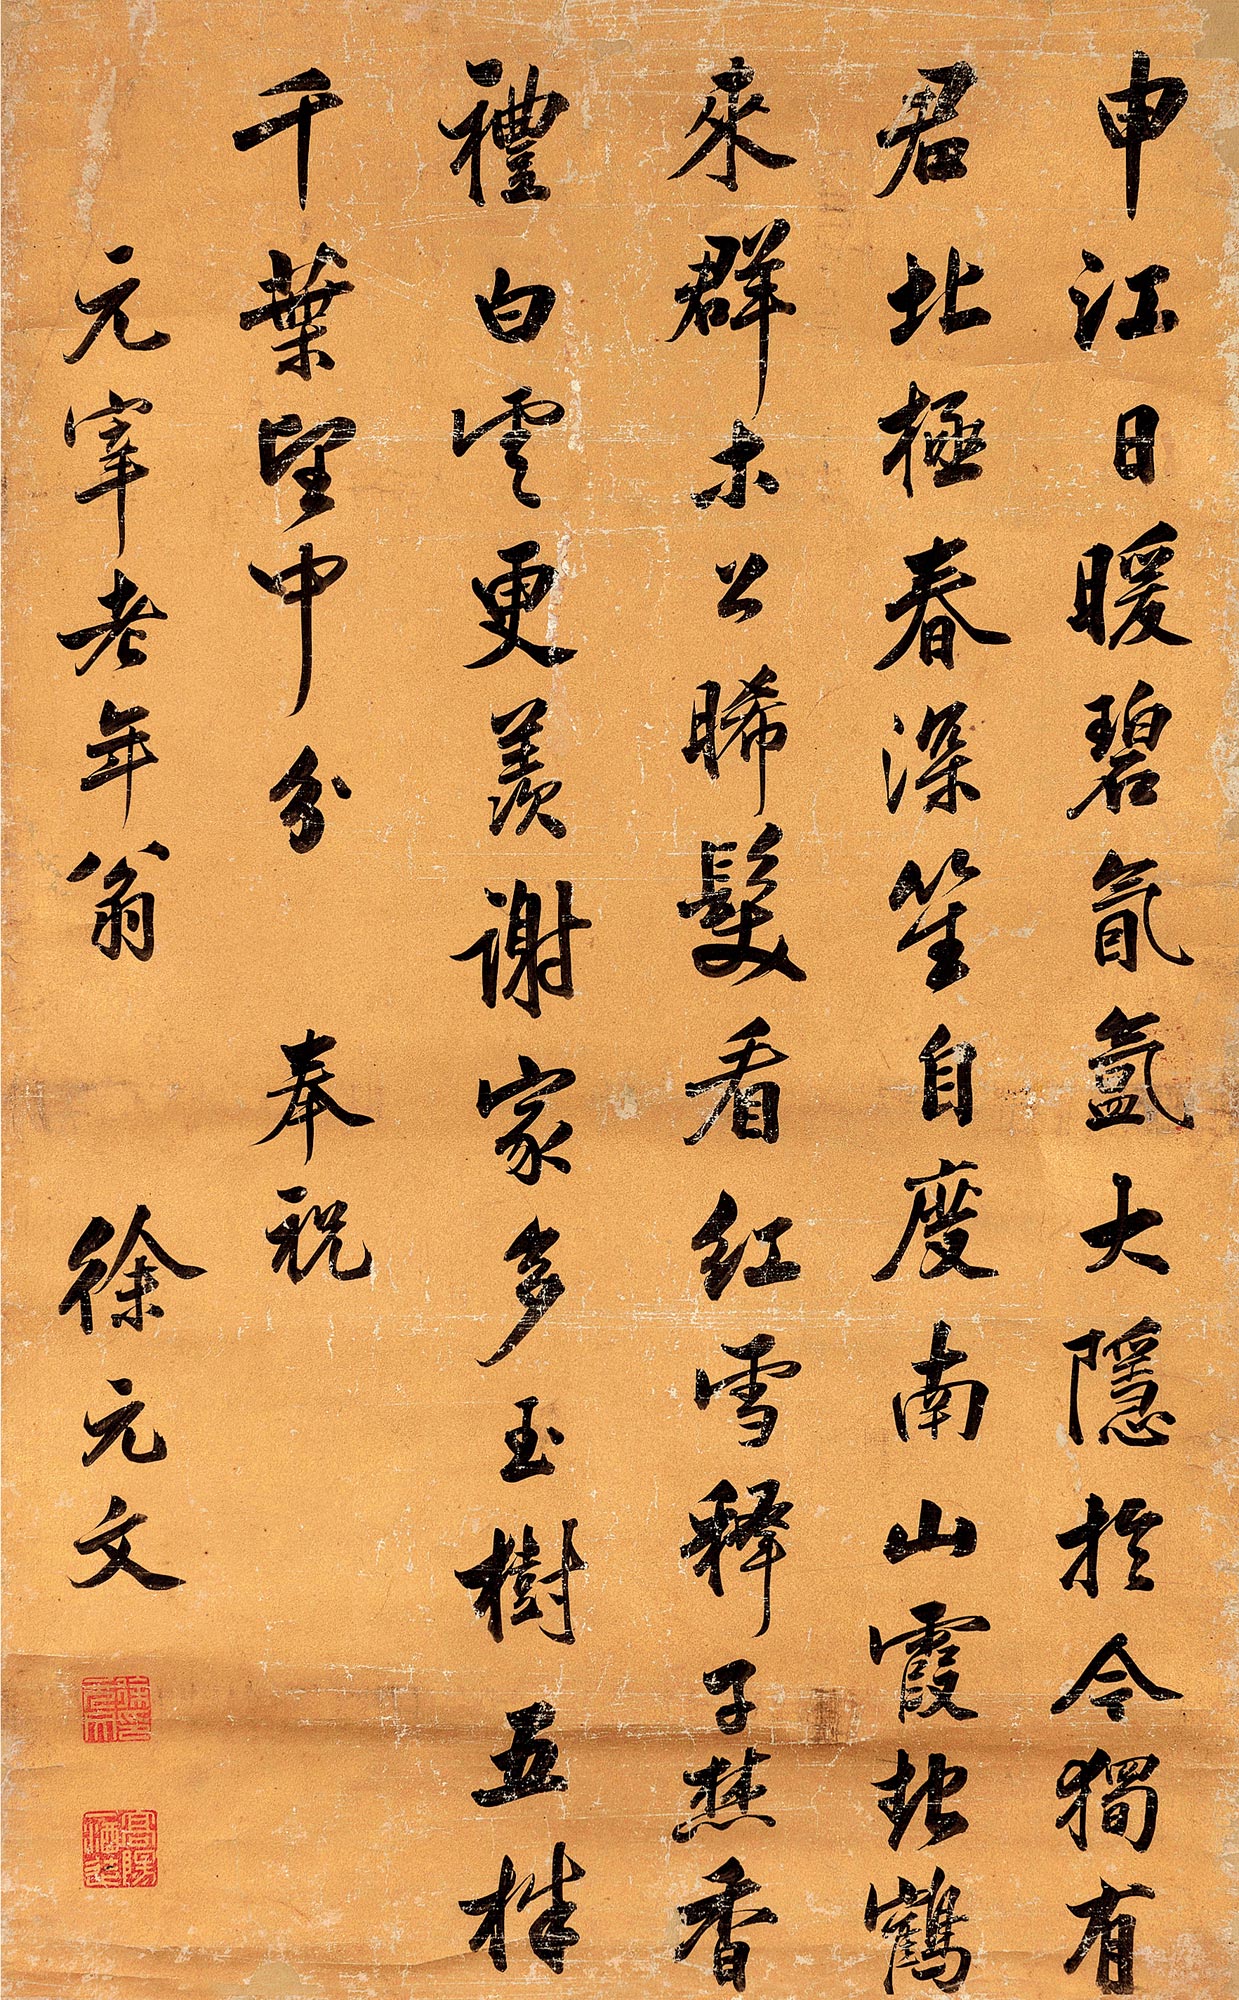 申江日暖碧氤氲大隱於今獨有
君北極春深笙自度南山霞起鶴
來群木公晞髮看紅雪釋子焚香
禮白雲更羨謝家多玉樹五株
千葉望中分 奉祝
元宰老年翁 徐元文